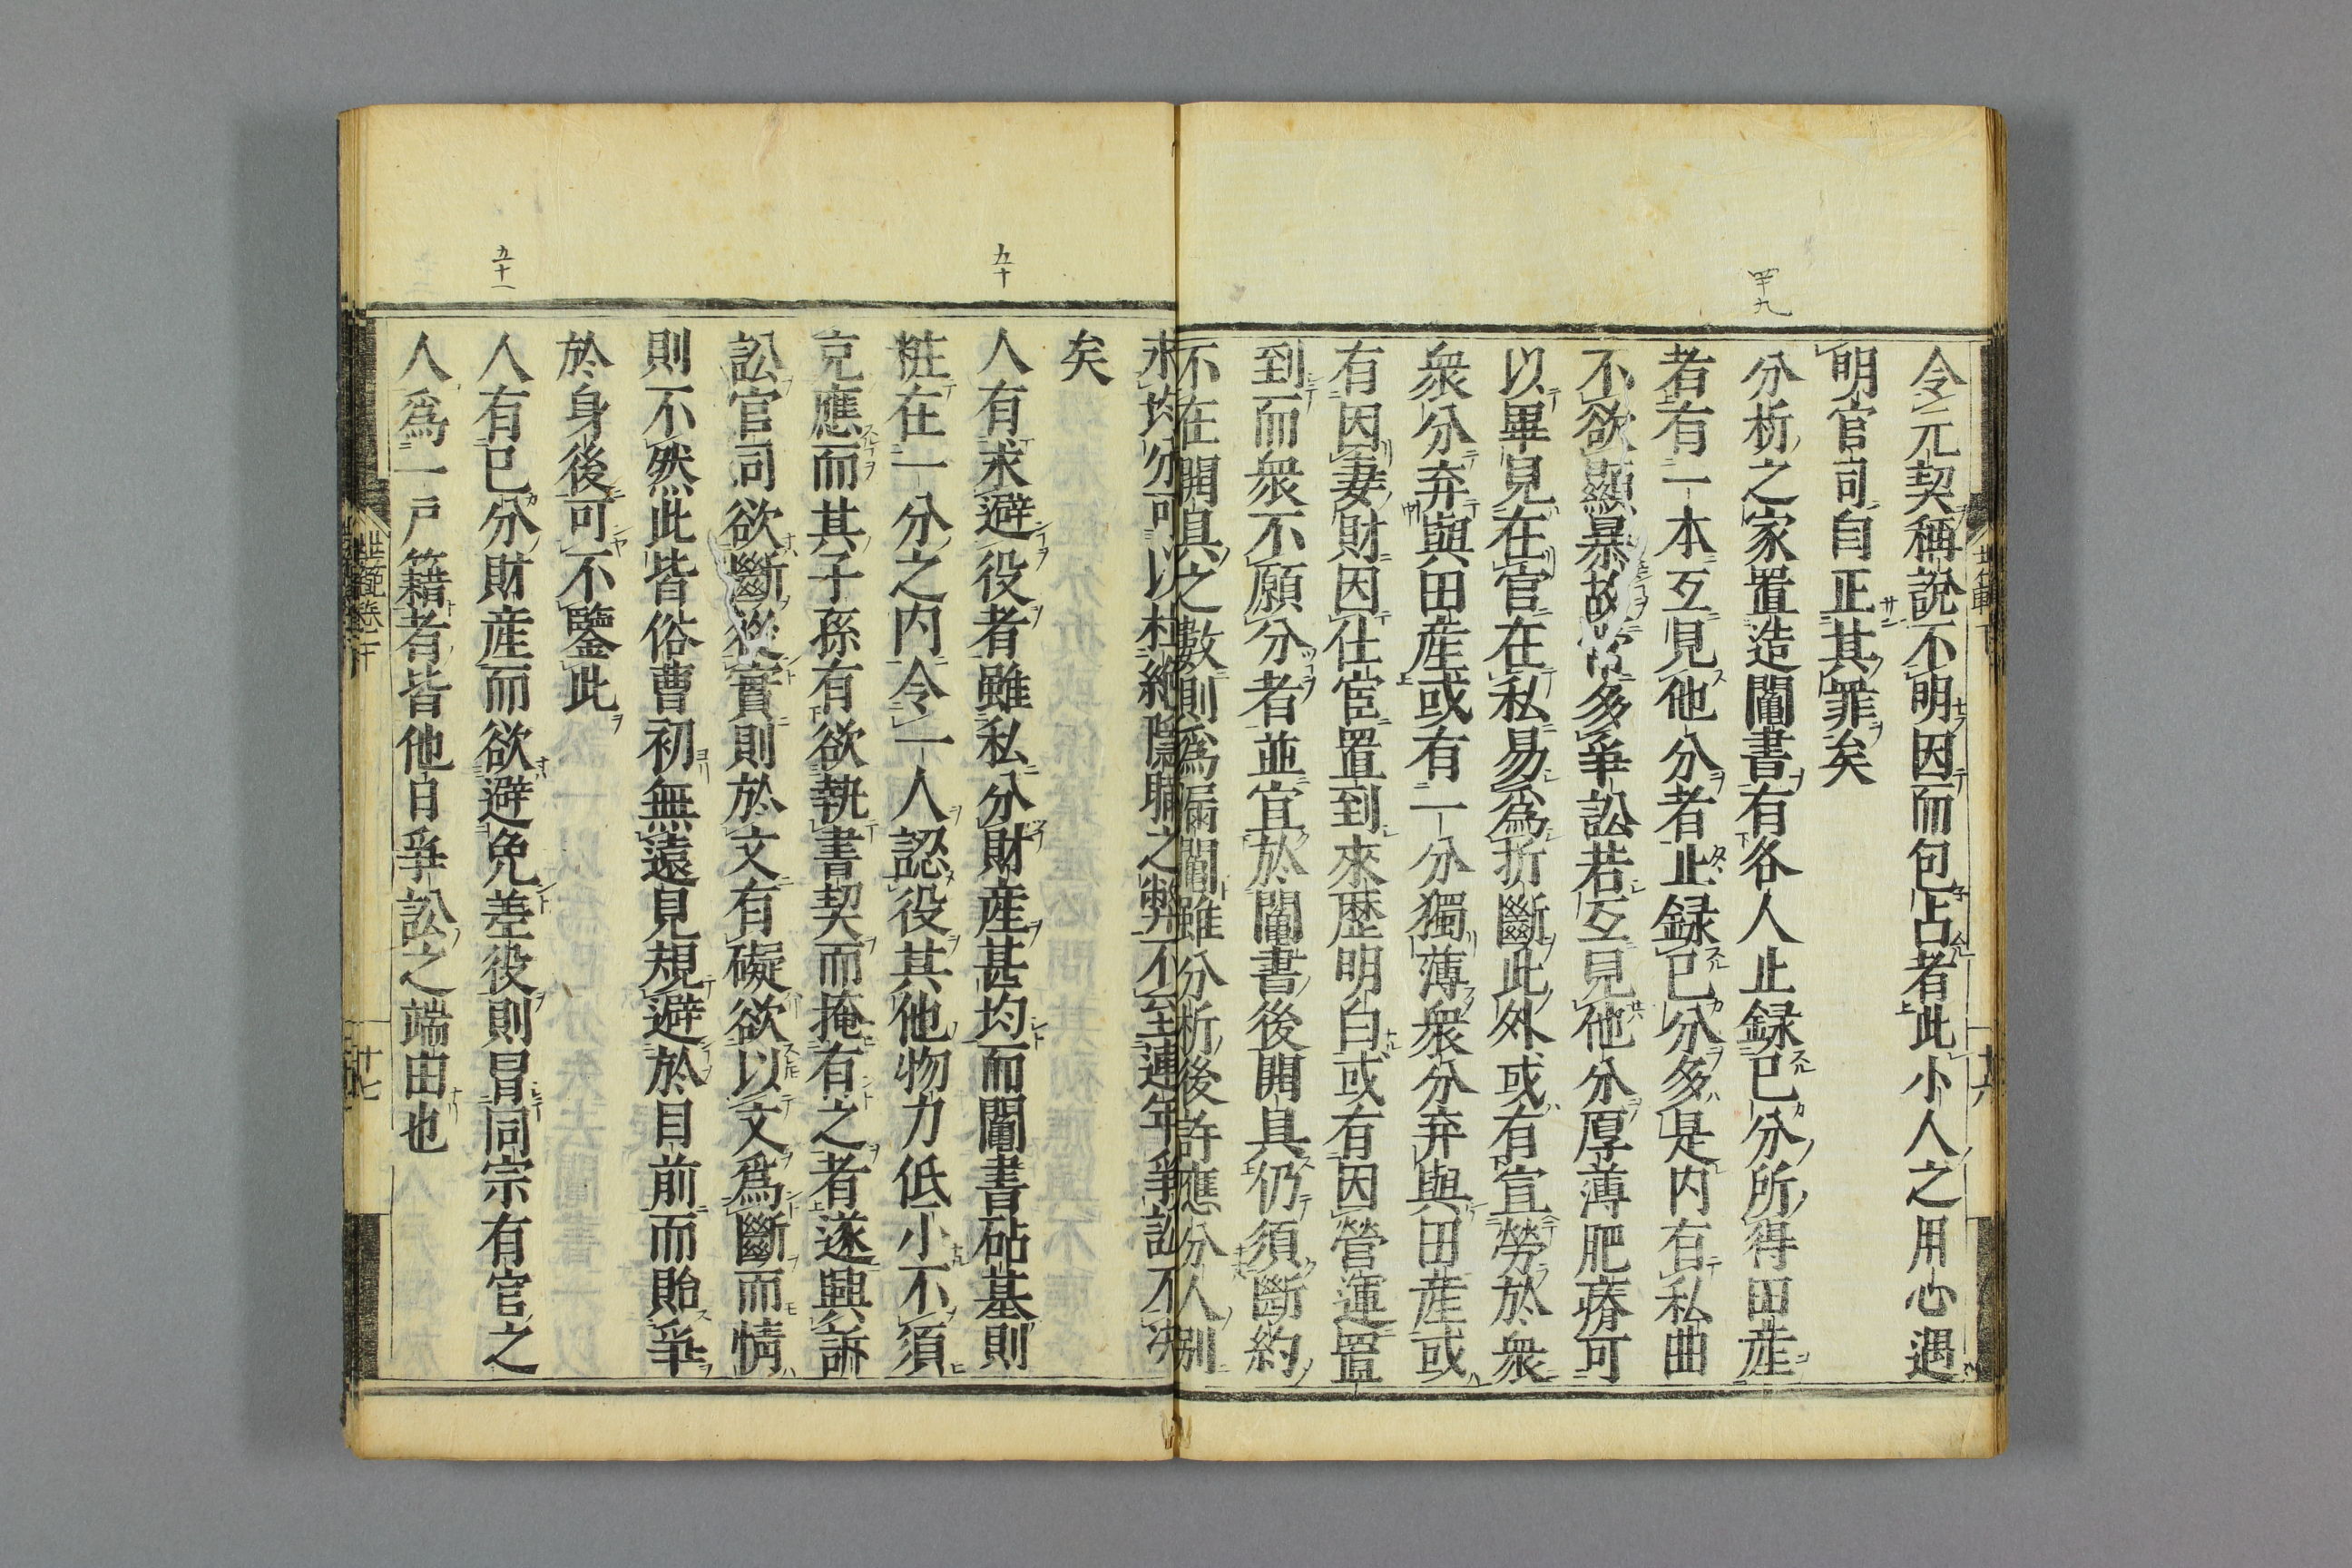 四十九
令元契稱說不明因而包占者此小人之用心遇
明官司自正其罪矣
分析之家置造鬮書有各人止録已分所得田産
者有一本互見他分者止録已分多是内有私曲
不欲顯暴故常多爭訟若互見他分厚薄肥瘠可
以畢見在官在私易爲折斷此外或有宣勞於衆
衆分弃與田産或有一分獨薄衆分弃與田産或
有因妻財因仕宦置到來歴明白或有因營運置
到而衆不願分者並宜於鬮書後開具仍須斷約
不在開具之數則爲漏鬮雖分析後許應分人別
五十
五十一
求均分可以杜絶隱瞞之弊不至連年爭訟不决
矣
人有求避役者雖私分財産甚均而鬮書砧基則
粧在一分之内令一人認役其他物力低小不須
克應而其子孫有欲執書契而掩有之者遂興訴
訟官司欲斷從實則於文有礙欲以文爲斷而情
則不然此皆俗曹初無遠見規避於目前而貽爭
於身後可不鑒此
人有已分財産而欲避免差役則冒同宗有官之
人爲一戸籍者皆他日爭訟之端由也
世範卷下
十七